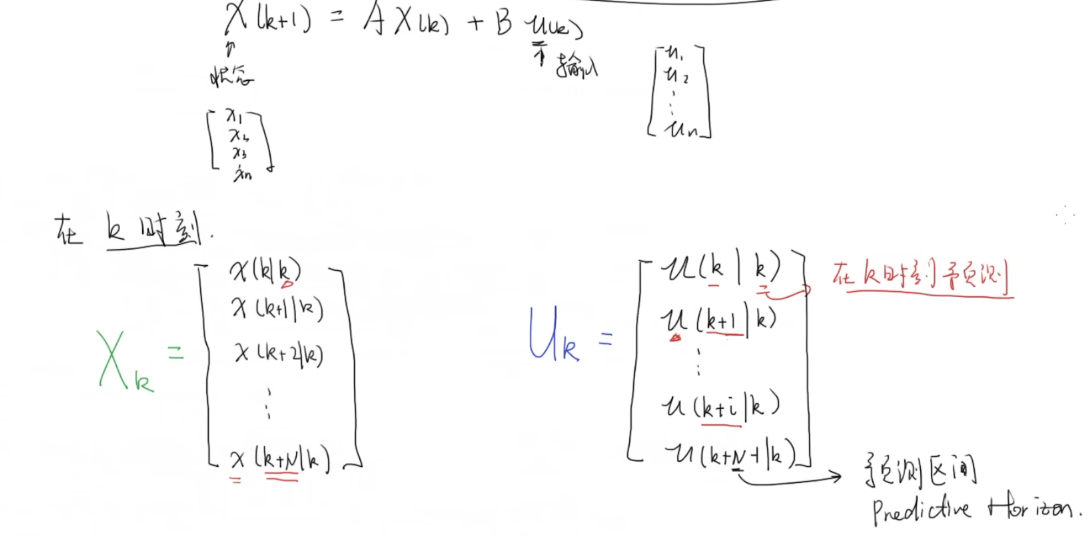 x(k+1) = A x(k) + B u(k)
↑ 状态
↑ 输入
[x₁
x₂
x₃
xₙ]
[u₁
u₂
⋮
uₙ]
在 k 时刻.
X_k = [x(k|k)
x(k+1|k)
x(k+2|k)
⋮
x(k+N|k)]
U_k = [u(k|k)
u(k+1|k)
⋮
u(k+i|k)
u(k+N-1|k)]
在k时刻预测
预测区间
Predictive Horizon.